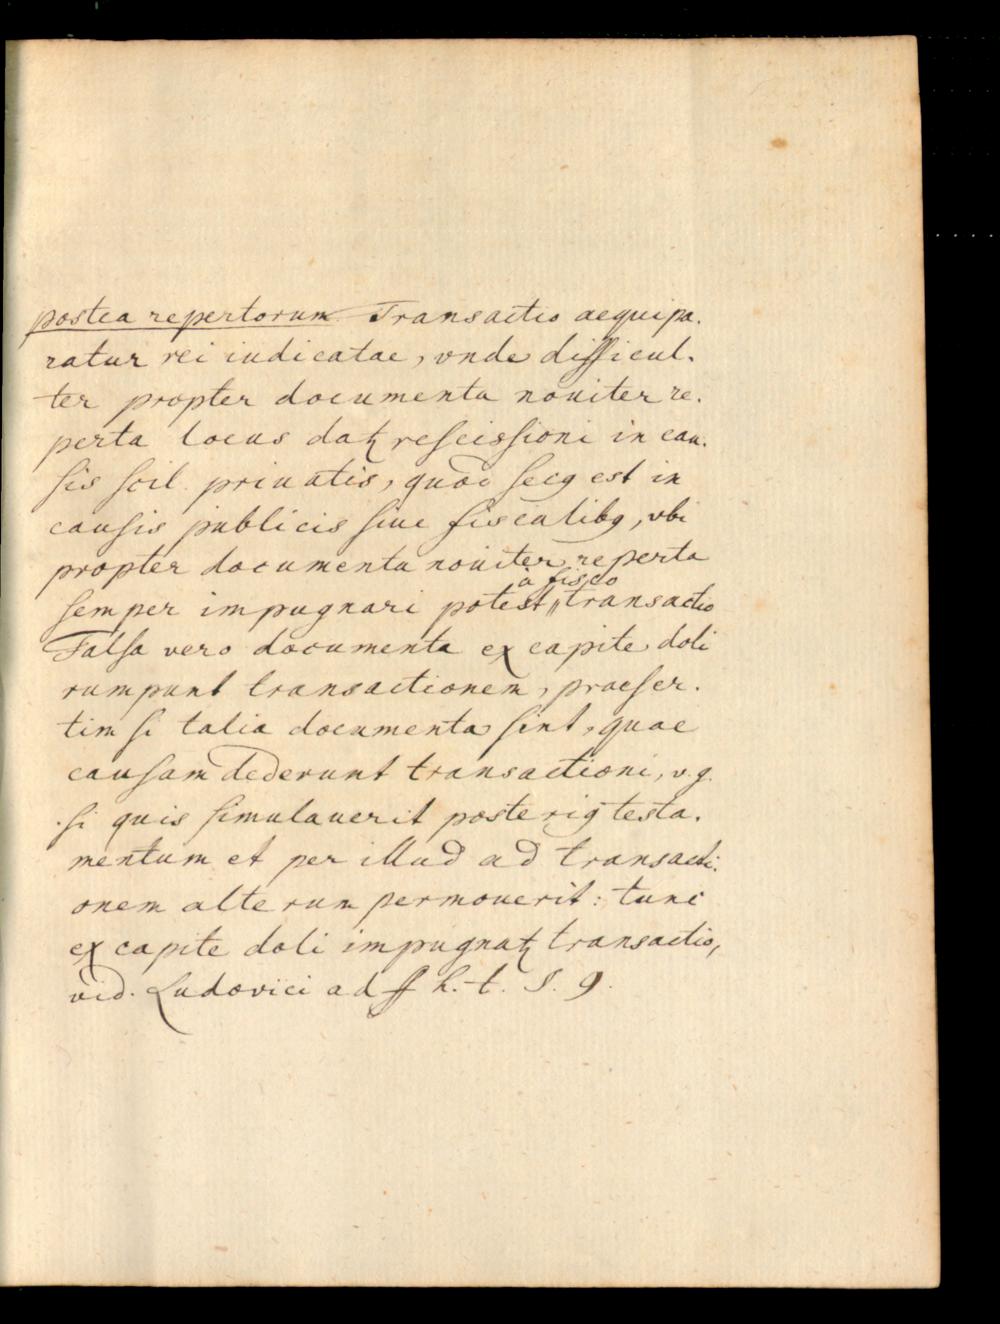 postea repertorum Transactio aequipa.
ratur rei iudicatae, vnde difficul.
ter propter documenta nouiter re.
perta locus datꝫ rescissioni in cau.
sis scil. priuatis, quod secꝯ est in
causis publicis siue fiscalibꝯ, vbi
propter documenta nouiter reperta
à fisco
semper impugnari potest,, transactio
Falsa vero documenta ex capite doli
rumpunt transactionem, praeser.
tim si talia documenta sint, quae
causam dederunt transactioni, v. g.
si quis simulauerit posteriꝯ testa.
mentum et per illud ad transacti.
onem alterum permouerit: tunc
ex capite doli impugnatꝫ transactio,
vid. Ludovici ad ff h. t. S. 9.